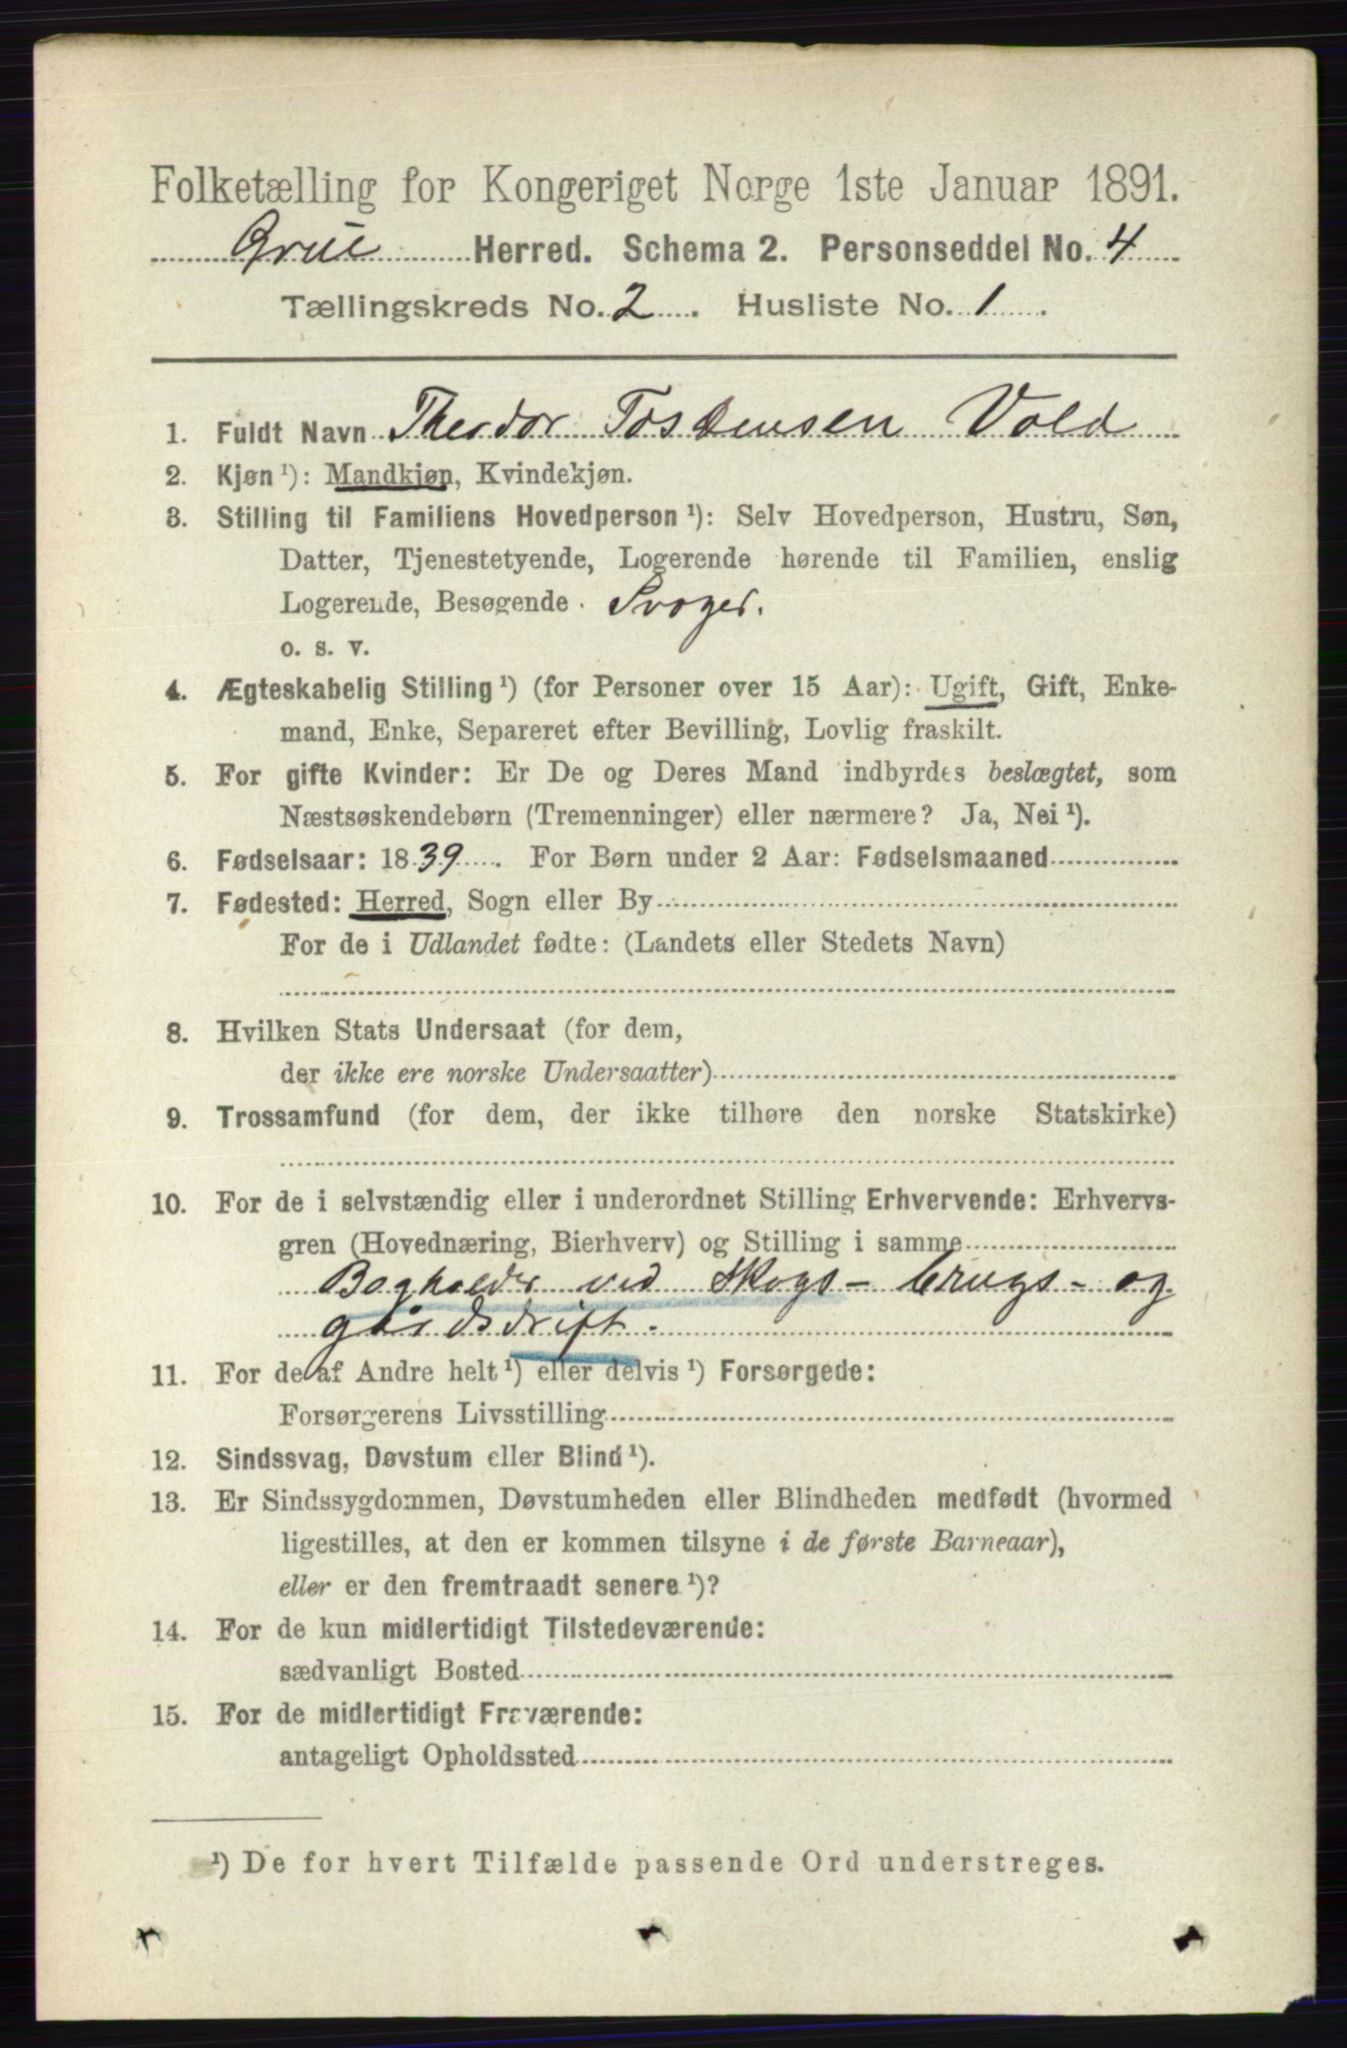 Folketælling for Kongeriget Norge 1ste Januar 1891.
Grue Herred. Schema 2. Personseddel No. 4
Tællingskreds No. 2. Husliste No. 1.
1. Fuldt Navn Theodor Tostensen Vold
2. Kjøn ¹): Mandkjøn, Kvindekjøn.
3. Stilling til Familiens Hovedperson ¹): Selv Hovedperson, Hustru, Søn,
Datter, Tjenestetyende, Logerende hørende til Familien, enslig
Logerende, Besøgende . Svoger.
o. s. v.
4. Ægteskabelig Stilling ¹) (for Personer over 15 Aar): Ugift, Gift, Enke-
mand, Enke, Separeret efter Bevilling, Lovlig fraskilt.
5. For gifte Kvinder: Er De og Deres Mand indbyrdes beslægtet, som
Næstsøskendebørn (Tremenninger) eller nærmere? Ja, Nei ¹).
6. Fødselsaar: 1839. For Børn under 2 Aar: Fødselsmaaned
7. Fødested: Herred, Sogn eller By
For de i Udlandet fødte: (Landets eller Stedets Navn)
8. Hvilken Stats Undersaat (for dem,
der ikke ere norske Undersaatter)
9. Trossamfund (for dem, der ikke tilhøre den norske Statskirke)
10. For de i selvstændig eller i underordnet Stilling Erhvervende: Erhvervs-
gren (Hovednæring, Bierhverv) og Stilling i samme
Bogholder ved Skogs- brugs- og
gårdsdrift.
11. For de af Andre helt ¹) eller delvis ¹) Forsørgede:
Forsørgerens Livsstilling
12. Sindssvag, Døvstum eller Blind ¹).
13. Er Sindssygdommen, Døvstumheden eller Blindheden medfødt (hvormed
ligestilles, at den er kommen tilsyne i de første Barneaar),
eller er den fremtraadt senere ¹)?
14. For de kun midlertidigt Tilstedeværende:
sædvanligt Bosted
15. For de midlertidigt Fraværende:
antageligt Opholdssted
¹) De for hvert Tilfælde passende Ord understreges.